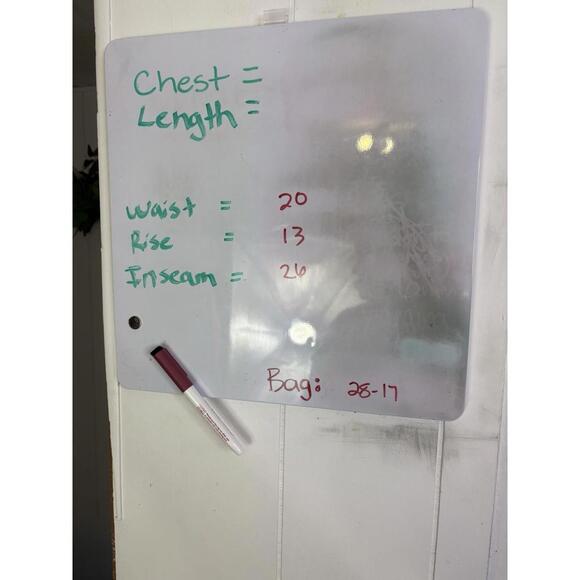 Chest =
Length =
Waist = 20
Rise = 13
Inseam = 26
Bag: 28-17